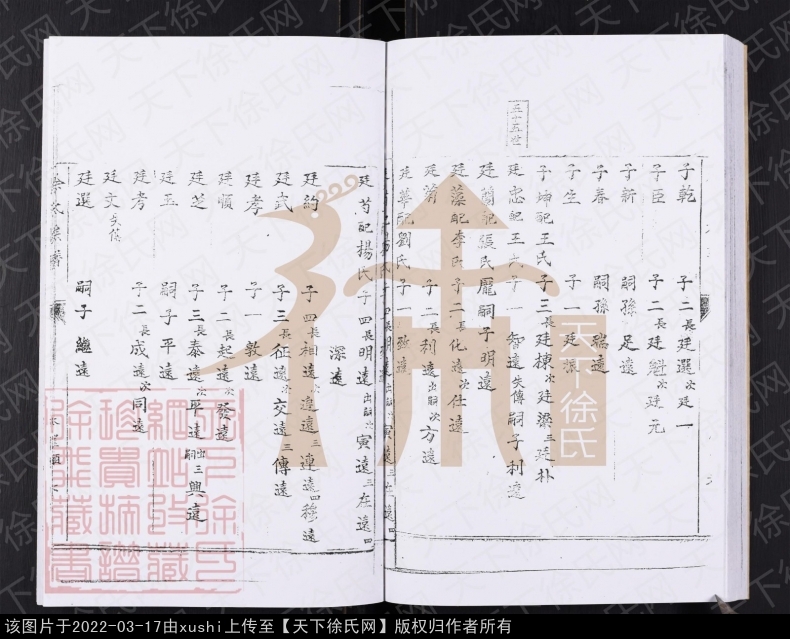 子乾 子二長廷選次廷一
子臣 子二長廷魁次廷元
子新 嗣孫足遠
子春 嗣孫
子生 子一廷
子坤配王氏 子三長廷棟次廷梁三廷朴
五十五世
廷忠配王氏 子一智遠失傳嗣子利遠
廷蘭配張氏龐 嗣子明遠
廷藻配李氏 子二長化遠次仕遠
廷 子二長利遠出嗣次方遠
廷華配劉氏 子一 遠
廷芍配楊氏 子四長明遠出嗣次寅遠三在遠四
深遠
廷約 子四長 遠次遑遠三連遠四穆遠
廷武 子三長征遠次交遠三傳遠
廷孝 子一敦遠
廷順 子二長起遠次發遠
廷芝 子三長泰遠次平遠出嗣三興遠
廷玉 嗣子平遠
廷考 子二長成遠次同遠
廷文失傳
廷選 嗣子繼遠
天下徐氏
天下徐氏网
该图片于2022-03-17由xushi上传至【天下徐氏网】版权归作者所有